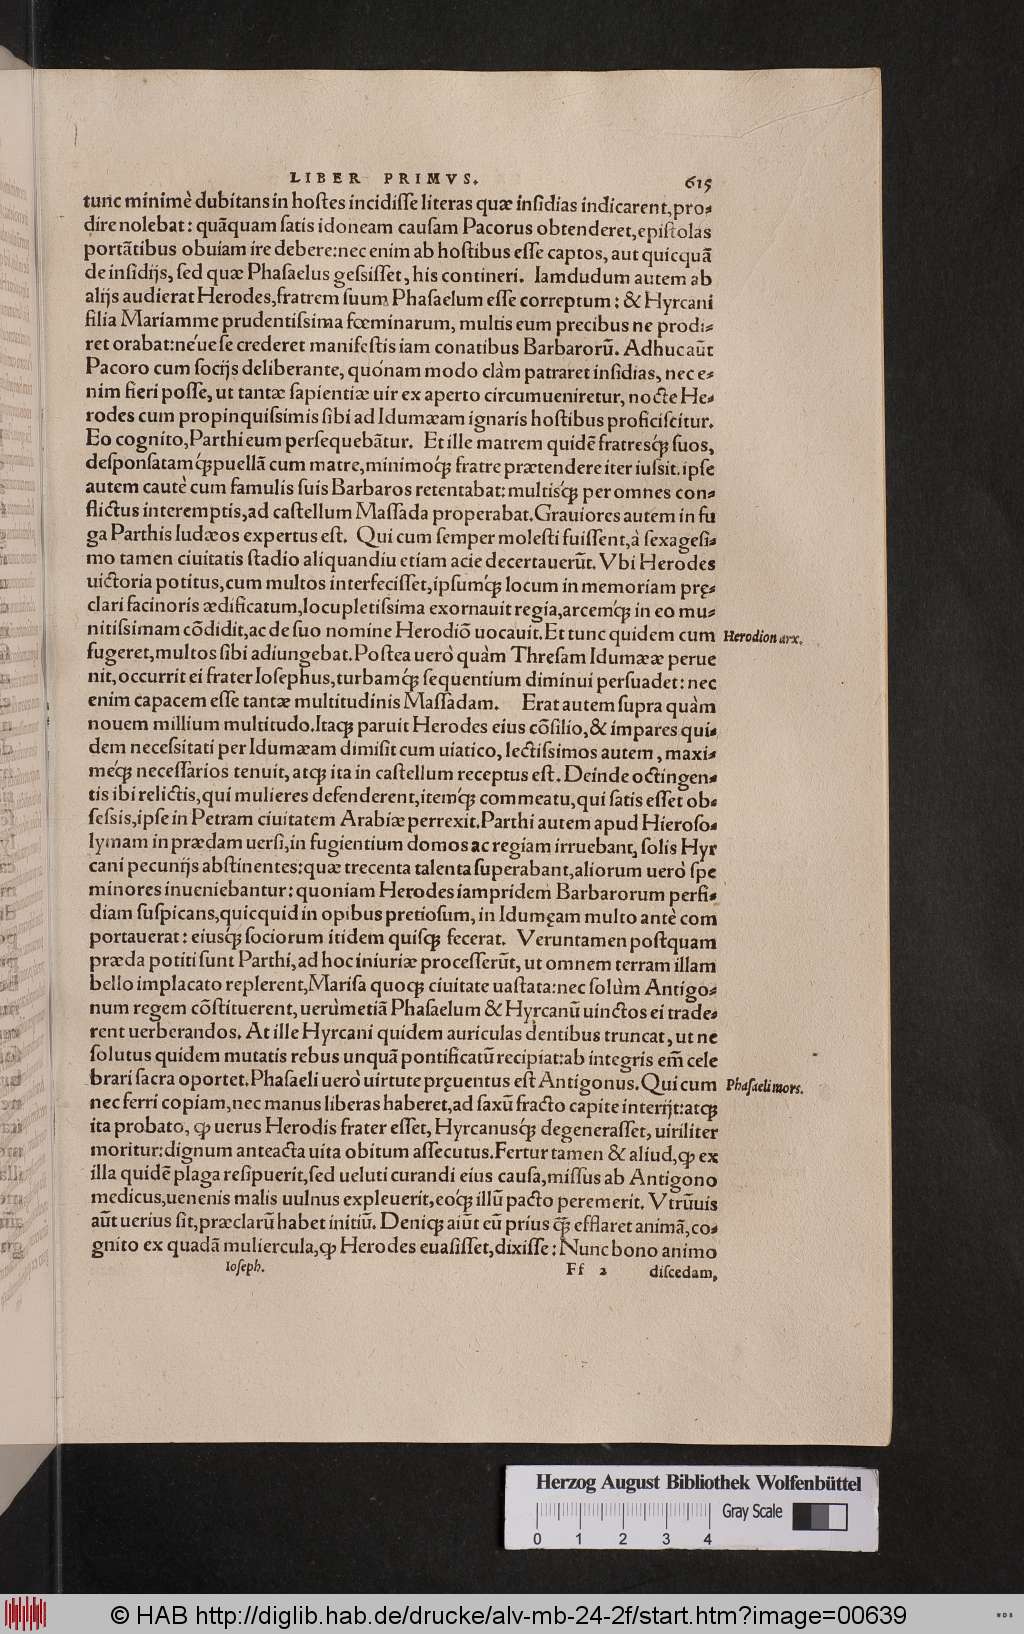 LIBER PRIMVS.
615
tunc minimè dubitans in hoſtes incidiſſe literas quæ inſidias indicarent, pro⸗
dire nolebat: quãquam ſatis idoneam cauſam Pacorus obtenderet, epiſtolas
portãtibus obuiam ire debere: nec enim ab hoſtibus eſſe captos, aut quicquã
de inſidijs, ſed quæ Phaſaelus geſsiſſet, his contineri. Iamdudum autem ab
alijs audierat Herodes, fratrem ſuum Phaſaelum eſſe correptum: & Hyrcani
filia Mariamme prudentiſsima fœminarum, multis eum precibus ne prodi⸗
ret orabat: ne´ue ſe crederet manifeſtis iam conatibus Barbarorũ. Adhuc aũt
Pacoro cum ſocijs deliberante, quónam modo clàm patraret inſidias, nec e⸗
nim fieri poſſe, ut tantæ ſapientiæ uir ex aperto circumueniretur, nocte He⸗
rodes cum propinquiſsimis ſibi ad Idumæam ignaris hoſtibus proficiſcitur.
Eo cognito, Parthi eum perſequebãtur. Et ille matrem quidẽ fratresq́ꝫ ſuos,
deſponſatamq́ꝫ puellã cum matre, minimoq́ꝫ fratre prætendere iter iuſsit. ipſe
autem cautè cum famulis ſuis Barbaros retentabat: multisq́ꝫ per omnes con⸗
flictus interemptis, ad caſtellum Maſſada properabat. Grauiores autem in fu
ga Parthis Iudæos expertus eſt. Qui cum ſemper moleſti fuiſſent, à ſexageſi⸗
mo tamen ciuitatis ſtadio aliquandiu etiam acie decertauerũt. Vbi Herodes
uictoria potitus, cum multos interfeciſſet, ipſumq́ꝫ locum in memoriam prę⸗
clari facinoris ædificatum, locupletiſsima exornauit regia, arcemq́ꝫ in eo mu⸗
nitiſsimam cõdidit, ac de ſuo nomine Herodiõ uocauit. Et tunc quidem cum
Herodion arx.
fugeret, multos ſibi adiungebat. Poſtea uerò quàm Threſam Idumææ perue
nit, occurrit ei frater Ioſephus, turbamq́ꝫ ſequentium diminui perſuadet: nec
enim capacem eſſe tantæ multitudinis Maſſadam. Erat autem ſupra quàm
nouem millium multitudo. Itaqꝫ paruit Herodes eius cõſilio, & impares qui⸗
dem neceſsitati per Idumæam dimiſit cum uiatico, lectiſsimos autem, maxi⸗
meq́ꝫ neceſſarios tenuit, atqꝫ ita in caſtellum receptus eſt. Deinde octingen⸗
tis ibi relictis, qui mulieres defenderent, itemq́ꝫ commeatu, qui ſatis eſſet ob⸗
ſeſsis, ipſe in Petram ciuitatem Arabiæ perrexit. Parthi autem apud Hieroſo⸗
lymam in prædam uerſi, in fugientium domos ac regiam irruebant, ſolis Hyr
cani pecunijs abſtinentes: quæ trecenta talenta ſuperabant, aliorum uerò ſpe
minores inueniebantur: quoniam Herodes iampridem Barbarorum perfi⸗
diam ſuſpicans, quicquid in opibus pretioſum, in Idumęam multo antè com
portauerat: eiusq́ꝫ ſociorum itidem quiſqꝫ fecerat. Veruntamen poſtquam
præda potiti ſunt Parthi, ad hoc iniuriæ proceſſerũt, ut omnem terram illam
bello implacato replerent, Mariſa quoqꝫ ciuitate uaſtata: nec ſolùm Antigo⸗
num regem cõſtituerent, uerùmetiã Phaſaelum & Hyrcanũ uinctos ei trade⸗
rent uerberandos. At ille Hyrcani quidem auriculas dentibus truncat, ut ne
ſolutus quidem mutatis rebus unquã pontificatũ recipiat: ab integris em̃ cele
brari ſacra oportet. Phaſaeli uerò uirtute pręuentus eſt Antigonus. Qui cum
Phaſaeli mors.
nec ferri copiam, nec manus liberas haberet, ad ſaxũ fracto capite interijt: atqꝫ
ita probato, ꝙ uerus Herodis frater eſſet, Hyrcanusq́ꝫ degeneraſſet, uiriliter
moritur: dignum anteacta uita obitum aſſecutus. Fertur tamen & aliud, ꝙ ex
illa quidẽ plaga reſipuerit, ſed ueluti curandi eius cauſa, miſſus ab Antigono
medicus, uenenis malis uulnus expleuerit, eoq́ꝫ illũ pacto peremerit. Vtrũuis
aũt uerius ſit, præclarũ habet initiũ. Deniqꝫ aiũt eũ prius q̃ꝫ efflaret animã, co⸗
gnito ex quadã muliercula, ꝙ Herodes euaſiſſet, dixiſſe: Nunc bono animo
Ioſeph.
Ff 2
diſcedam,
Herzog August Bibliothek Wolfenbüttel
Gray Scale
0 1 2 3 4
© HAB http://diglib.hab.de/drucke/alv-mb-24-2f/start.htm?image=00639